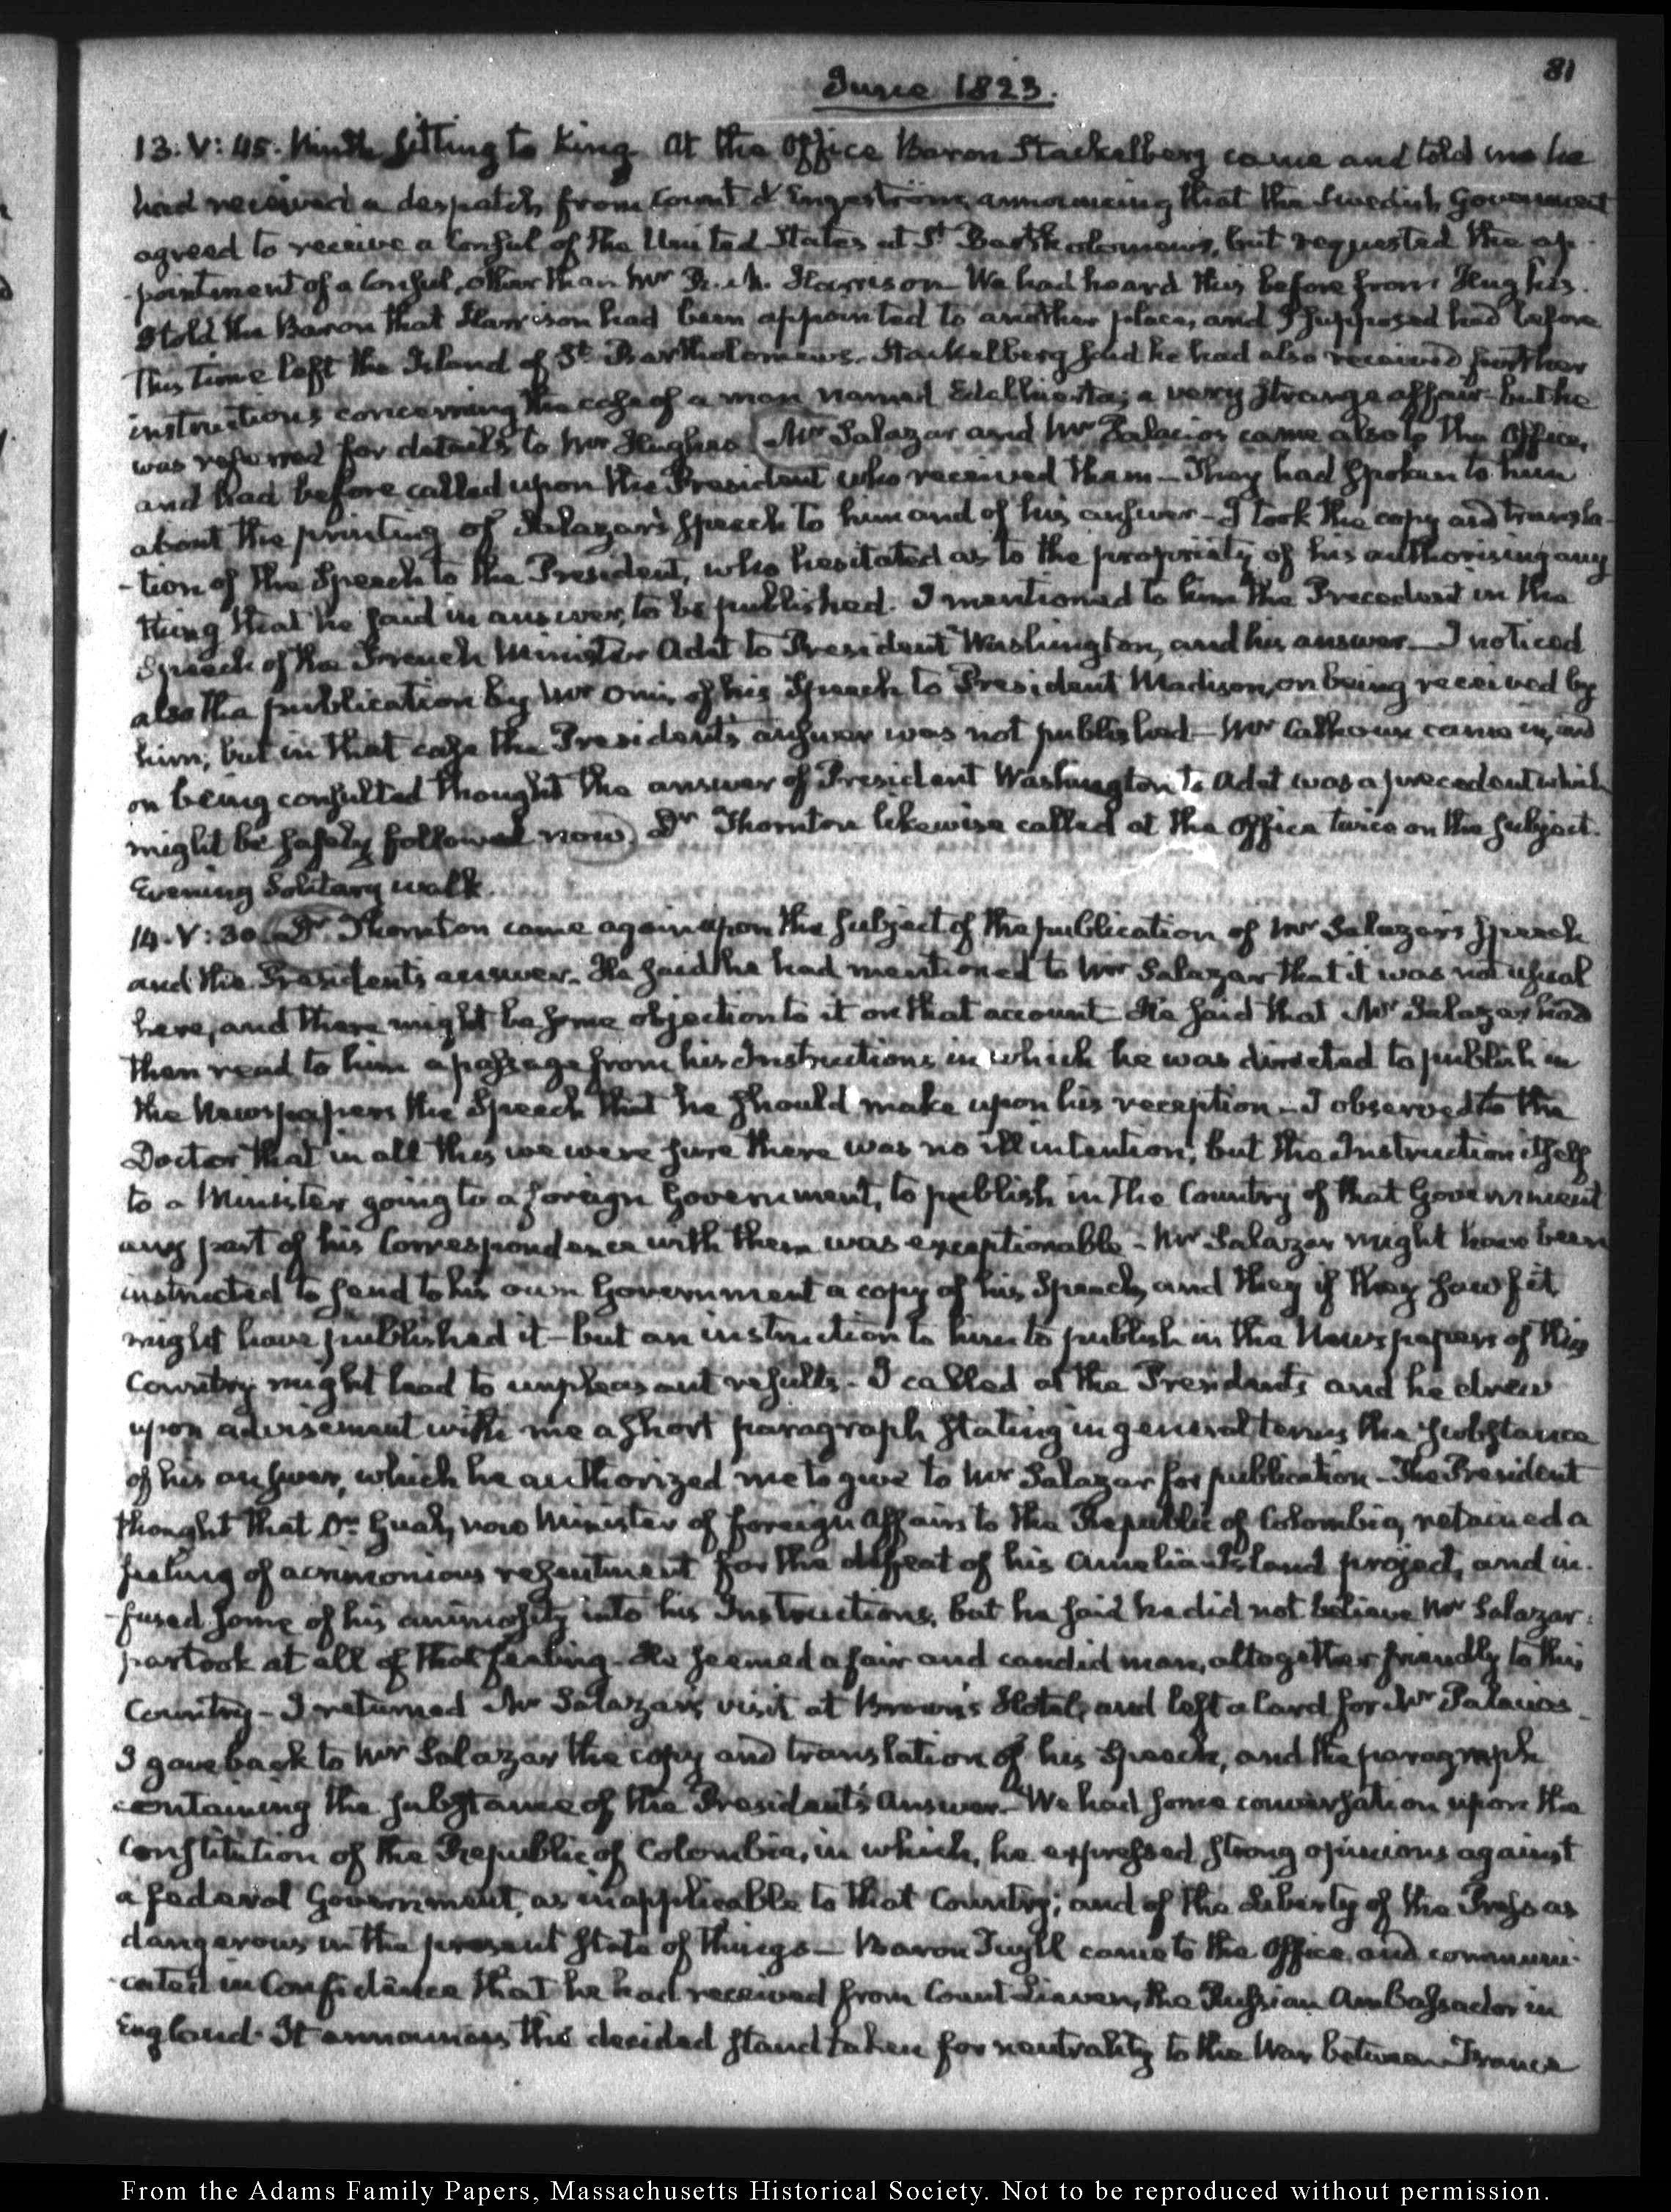 81
June 1823.
13. V: 45. Ninth sitting to King. At the Office Baron Stackelberg came and told me he
had received a despatch from Count d'Engeström, announcing that the Swedish Government
agreed to receive a Consul of the United States at St. Bartholomews, but requested the ap-
-pointment of a Consul, other than Mr R. M. Harrison— We had heard this before from Hughes.
I told the Baron that Harrison had been appointed to another place, and I supposed had before
this time left the Island of St. Bartholomews. Stackelberg said he had also received further
instructions concerning the case of a man named a very strange affair— but he
was referred for details to Mr Hughes. Mr Salazar and Mr Palacios came also to the Office,
and had before called upon the President who received them— They had spoken to him
about the printing of Salazar's speech to him and of his answer— I took the copy and transla-
-tion of the Speech to the President, who hesitated as to the propriety of his authorising any
thing that he said in answer, to be published. I mentioned to him the Precedent in the
Speech of the French Minister Adet to President Washington, and his answer— I noticed
also the publication by Mr Onis of his Speech to President Madison, on being received by
him; but in that case the President's answer was not published— Mr Calhoun came in, and
on being consulted thought the answer of President Washington to Adet was a precedent which
might be safely followed now. Dr Thornton likewise called at the Office twice on the subject.
Evening Solitary walk.
14. V: 30. Dr Thornton came again upon the subject of the publication of Mr Salazar's speech
and the President's answer— He said he had mentioned to Mr Salazar that it was not usual
here, and there might be some objection to it on that account— He said that Mr Salazar had
then read to him a passage from his Instructions in which he was directed to publish in
the Newspapers the Speech that he should make upon his reception— I observed to the
Doctor that in all this we were sure there was no ill intention; but the Instruction itself
to a Minister going to a foreign Government, to publish in the Country of that Government
any part of his Correspondence with them was exceptionable— Mr Salazar might have been
instructed to send to his own Government a copy of his Speech, and they if they saw fit
might have published it— but an instruction to him to publish in the Newspapers of this
Country might lead to unpleasant results— I called at the President's and he drew
upon advisement with me a short paragraph stating in general terms the substance
of his answer, which he authorized me to give to Mr Salazar for publication— The President
thought that Dr Gual, now Minister of foreign Affairs to the Republic of Colombia, retained a
feeling of acrimonious resentment for the defeat of his Amelia Island project, and in-
-fused some of his animosity into his Instructions. But he said he did not believe Mr Salazar
partook at all of that feeling— He seemed a fair and candid man, altogether friendly to this
Country— I returned Mr Salazar's visit at Brown's Hotel, and left a Card for Mr Palacios—
I gave back to Mr Salazar the copy and translation of his Speech, and the paragraph
containing the substance of the President's Answer— We had some conversation upon the
Constitution of the Republic of Colombia, in which, he expressed strong opinions against
a federal Government, as inapplicable to that Country; and of the Liberty of the Press as
dangerous in the present state of things— Baron Tuyll came to the Office, and communi-
-cated in Confidence that he had received from Count Lieven, the Russian Ambassador in
England. It announces the decided stand taken for neutrality to the War between France
From the Adams Family Papers, Massachusetts Historical Society. Not to be reproduced without permission.